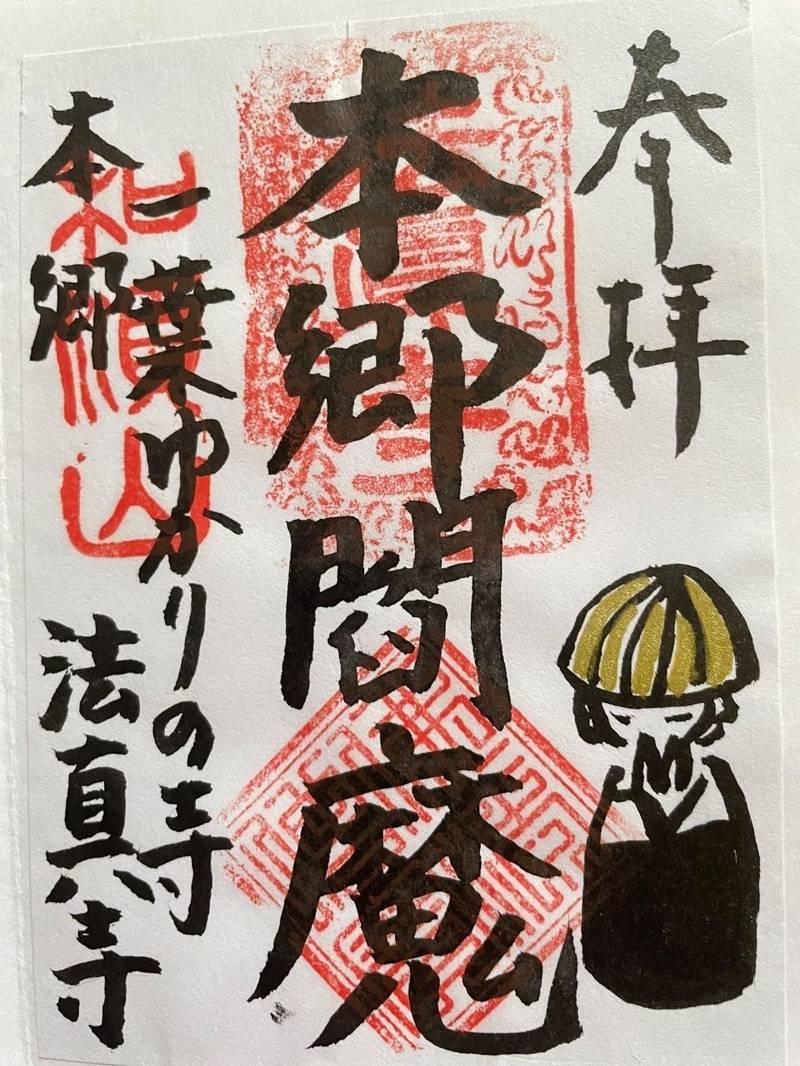 奉拝
本郷閻魔
一葉ゆかりの寺
本郷 法真寺